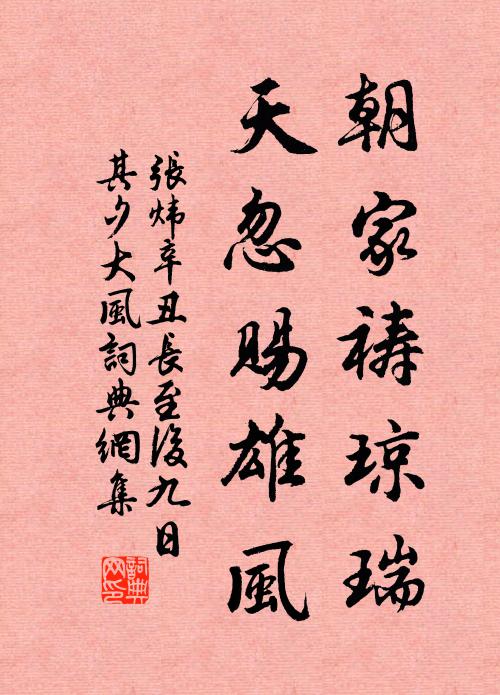 朝家祷琼瑞
天忽賜雄風
張炜辛丑長至後九日
其夕大風詞典網集
詞典网印